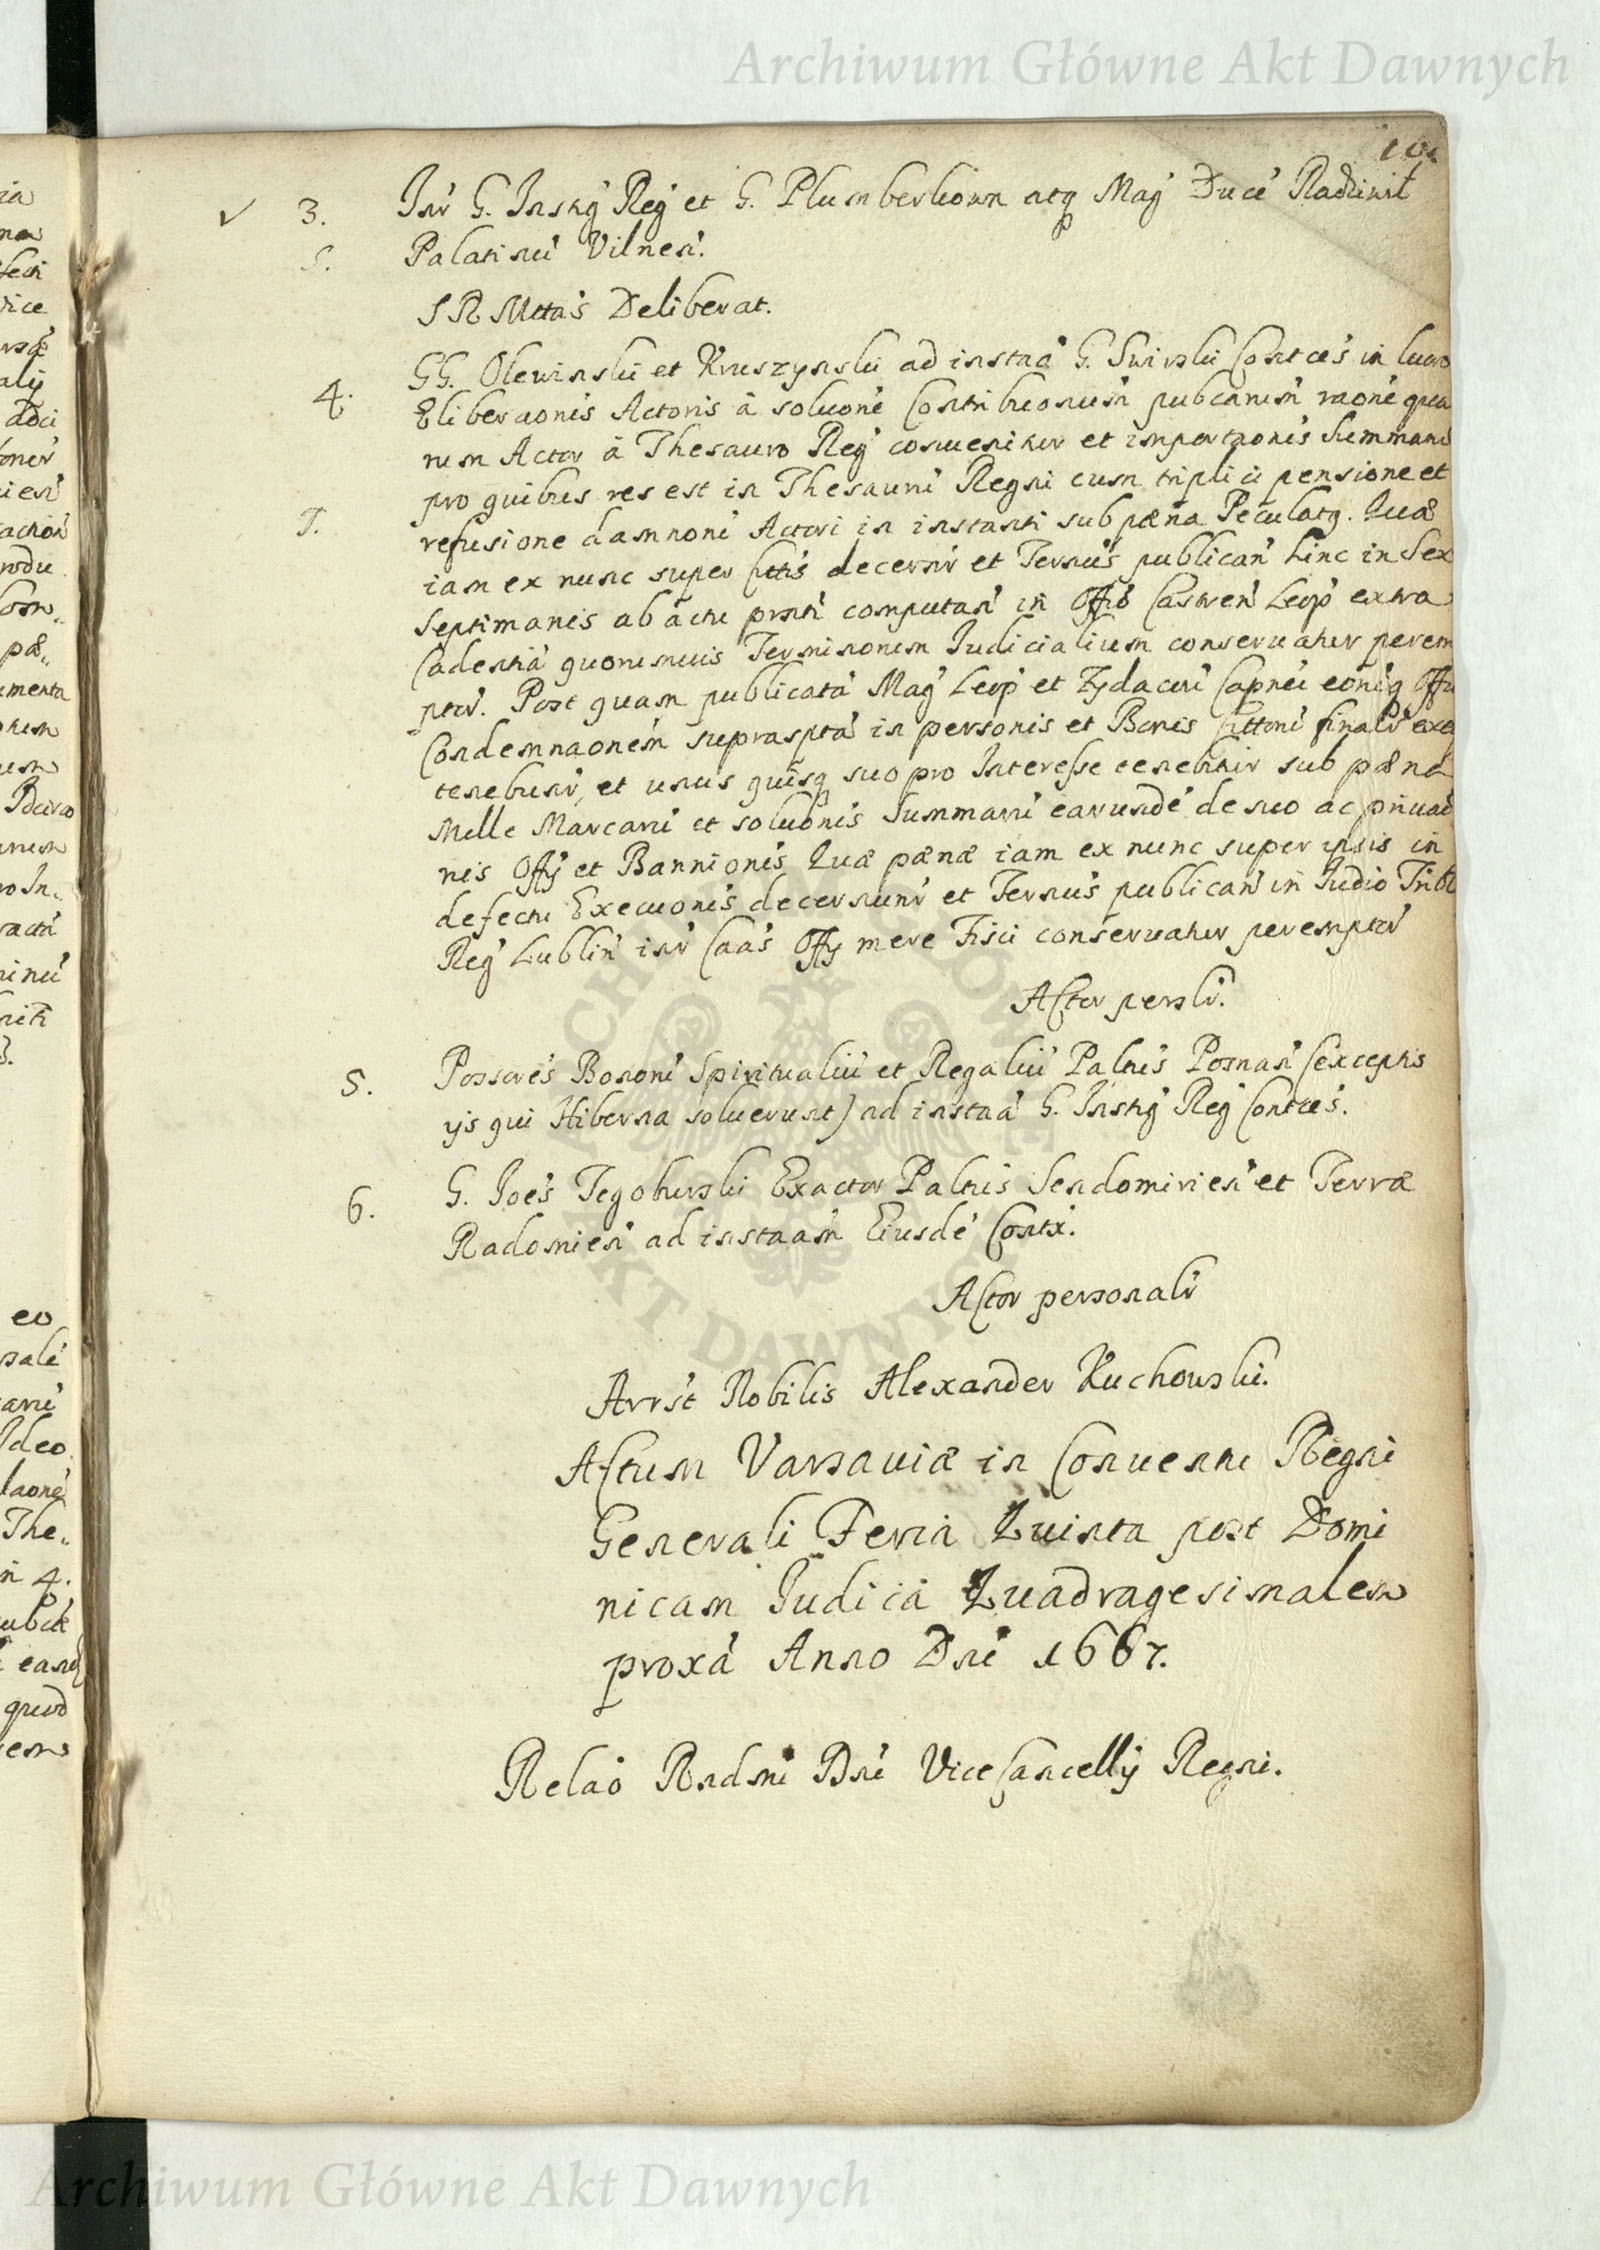 Archiwum Główne Akt Dawnych
101
✓ 3. Inr G. Instig Reg et G. Plumberkown atq Mag Duce Radziwił
S. Palatinu Vilnen.
S R Mttas Deliberat.
4. GG. Olewinski et Kruszynski ad instaa G. Swirski Conteēs in lucro
Eliberaonis Actoris à soluone Contribuonum pubcarum raone qua
rum Actor à Thesauro Reg conuenitur et importaonis Summaru
pro quibus res est in Thesauru Regni cum triplici pensione et
T. refusione damnoru Actori in instanti sub pæna Peculatq. Quæ
iam ex nunc super Cittis decernr et Ternus publican hinc in Sex
Septimanis ab actu prnti computan in Offo Castren Leop extra
Cadentia quorumuis Terminorum Judicialium conseruatur perem
ptor. Post quam publicata Mag Leop et Zydaciou Capnei eorūq Offa
Condemnaonem suprascpta in personis et Bonis Cittoru finalr exeq
tenebunr, et unus quisq suo pro Interesse tenebitur sub pæna
Mille Marcaru et soluonis Summaru earunde de suo ac priuao
nis Offij et Bannionis Quæ pænæ iam ex nunc super ipsis in
defectu Execuonis decernunr et Ternus publican in Judio Tribli
Reg Lublin inr Caas Offij mere Fisci conseruatur peremptor
Actor perslr.
5. Possores Bonoru Spiritualiu et Regaliu Palnis Posnan (exceptis
ijs qui Hiberna soluerunt) ad instaa G. Instig Reg Contēs.
6. G. Joes Tegoburski Exactor Palnis Sendomirien et Terræ
Radomien ad instaam Eiusde Contx.
Actor personalr
Arrst Nobilis Alexander Kuchowski.
Actum Varsauiæ in Conuentu Regni
Generali Feria Quinta post Domi
nicam Judica Quadragesimalem
proxa Anno Dni 1667.
Relao Rndmi Dni Vice Cancellij Regni.
Archiwum Główne Akt Dawnych